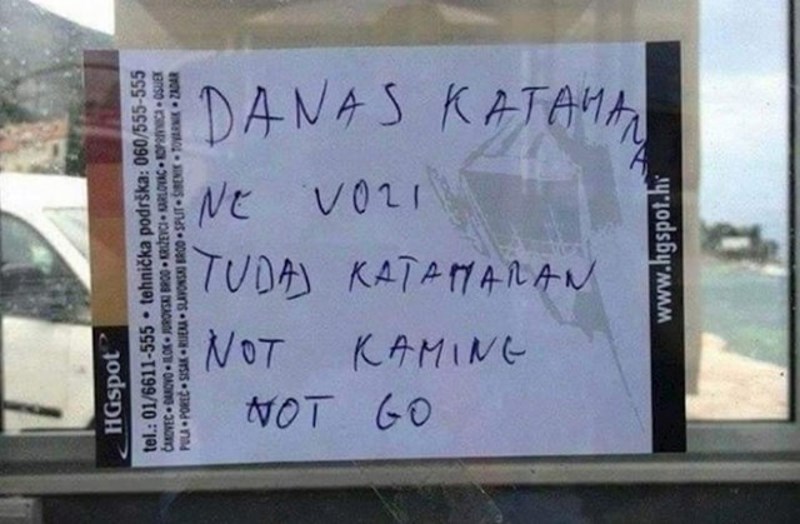 DANAS KATAMANA
NE VOZI
TUDAJ KATAMARAN
NOT KAMING
NOT GO
HGspot
tel.: 01/6611-555 • tehnička podrška: 060/555-555
ČAKOVEC • ĐAKOVO • ILOK • JUROVSKI BROD • KRIŽEVCI • KARLOVAC • KOPRIVNICA • OSIJEK
PULA • POREČ • SISAK • RIJEKA • SLAVONSKI BROD • SPLIT • ŠIBENIK • TOVARNIK • ZADAR
www.hgspot.hr